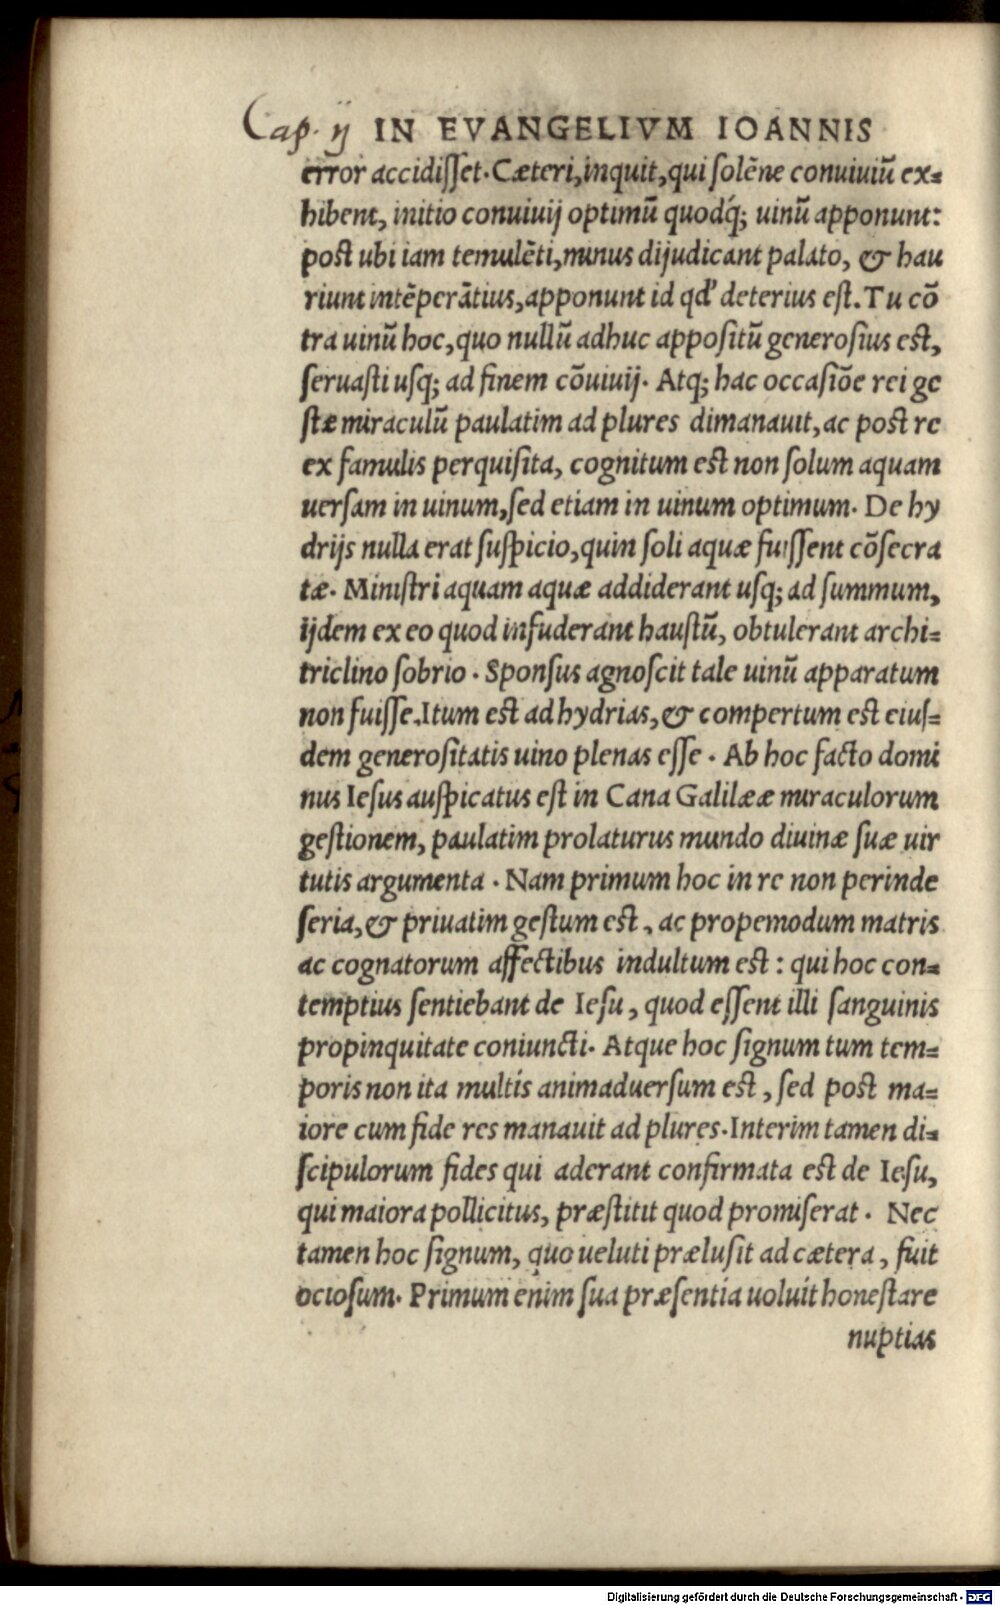 Cap. ij IN EVANGELIVM IOANNIS
error accidisset. Cæteri, inquit, qui solēne conuiuiū ex=
hibent, initio conuiuij optimū quodq́; uinū apponunt:
post ubi iam temulēti, minus dijudicant palato, & hau
riunt intēperātius, apponunt id qd' deterius est. Tu cō
tra uinū hoc, quo nullū adhuc appositū generosius est,
seruasti usq; ad finem cōuiuij. Atq; hac occasiōe rei ge
stæ miraculū paulatim ad plures dimanauit, ac post re
ex famulis perquisita, cognitum est non solum aquam
uersam in uinum, sed etiam in uinum optimum. De hy
drijs nulla erat suspicio, quin soli aquæ fuissent cōsecra
tæ. Ministri aquam aquæ addiderant usq; ad summum,
ijdem ex eo quod infuderant haustū, obtulerant archi=
triclino sobrio. Sponsus agnoscit tale uinū apparatum
non fuisse. Itum est ad hydrias, & compertum est eius=
dem generositatis uino plenas esse. Ab hoc facto domi
nus Iesus auspicatus est in Cana Galilææ miraculorum
gestionem, paulatim prolaturus mundo diuinæ suæ uir
tutis argumenta. Nam primum hoc in re non perinde
seria, & priuatim gestum est, ac propemodum matris
ac cognatorum affectibus indultum est: qui hoc con=
temptius sentiebant de Iesu, quod essent illi sanguinis
propinquitate coniuncti. Atque hoc signum tum tem=
poris non ita multis animaduersum est, sed post ma=
iore cum fide res manauit ad plures. Interim tamen di=
scipulorum fides qui aderant confirmata est de Iesu,
qui maiora pollicitus, præstitit quod promiserat. Nec
tamen hoc signum, quo ueluti prælusit ad cætera, fuit
ociosum. Primum enim sua præsentia uoluit honestare
nuptias
Digitalisierung gefördert durch die Deutsche Forschungsgemeinschaft - DFG